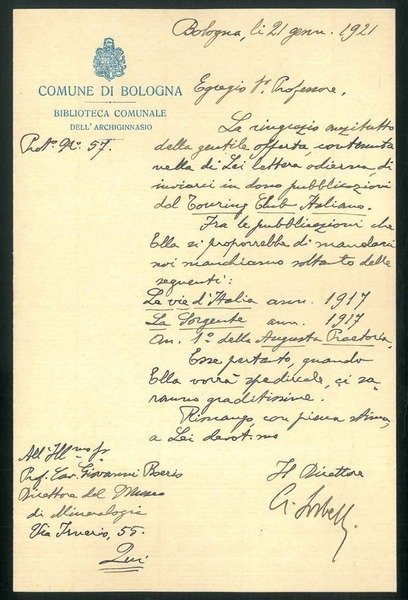 Bologna, li 21 genn. 1921
COMUNE DI BOLOGNA
BIBLIOTECA COMUNALE
DELL'ARCHIGINNASIO
Prot.º Nº 57.
Egregio Sr. Professore.
La ringrazio anzitutto
della gentile offerta, contenuta
nella di Lei lettera odierna, di
inviarci in dono pubblicazioni
del Touring Club Italiano.
Fra le pubblicazioni che
Ella si proporrebbe di mandarci
noi manchiamo soltanto delle
seguenti:
Le vie d'Italia ann. 1917
La Sorgente ann. 1917
An. 1º della Augusta Praetoria.
Esse pertanto, quando
Ella vorrà spedircele, ci sa-
ranno graditissime.
Rimango con piena stima,
a Lei devot.mo
Il Direttore
A. Sorbelli
All' Ill.mo Sr
Prof. Cav. Giovanni Boeris
Direttore del Museo
di Mineralogia
Via Irnerio, 55.
Qui